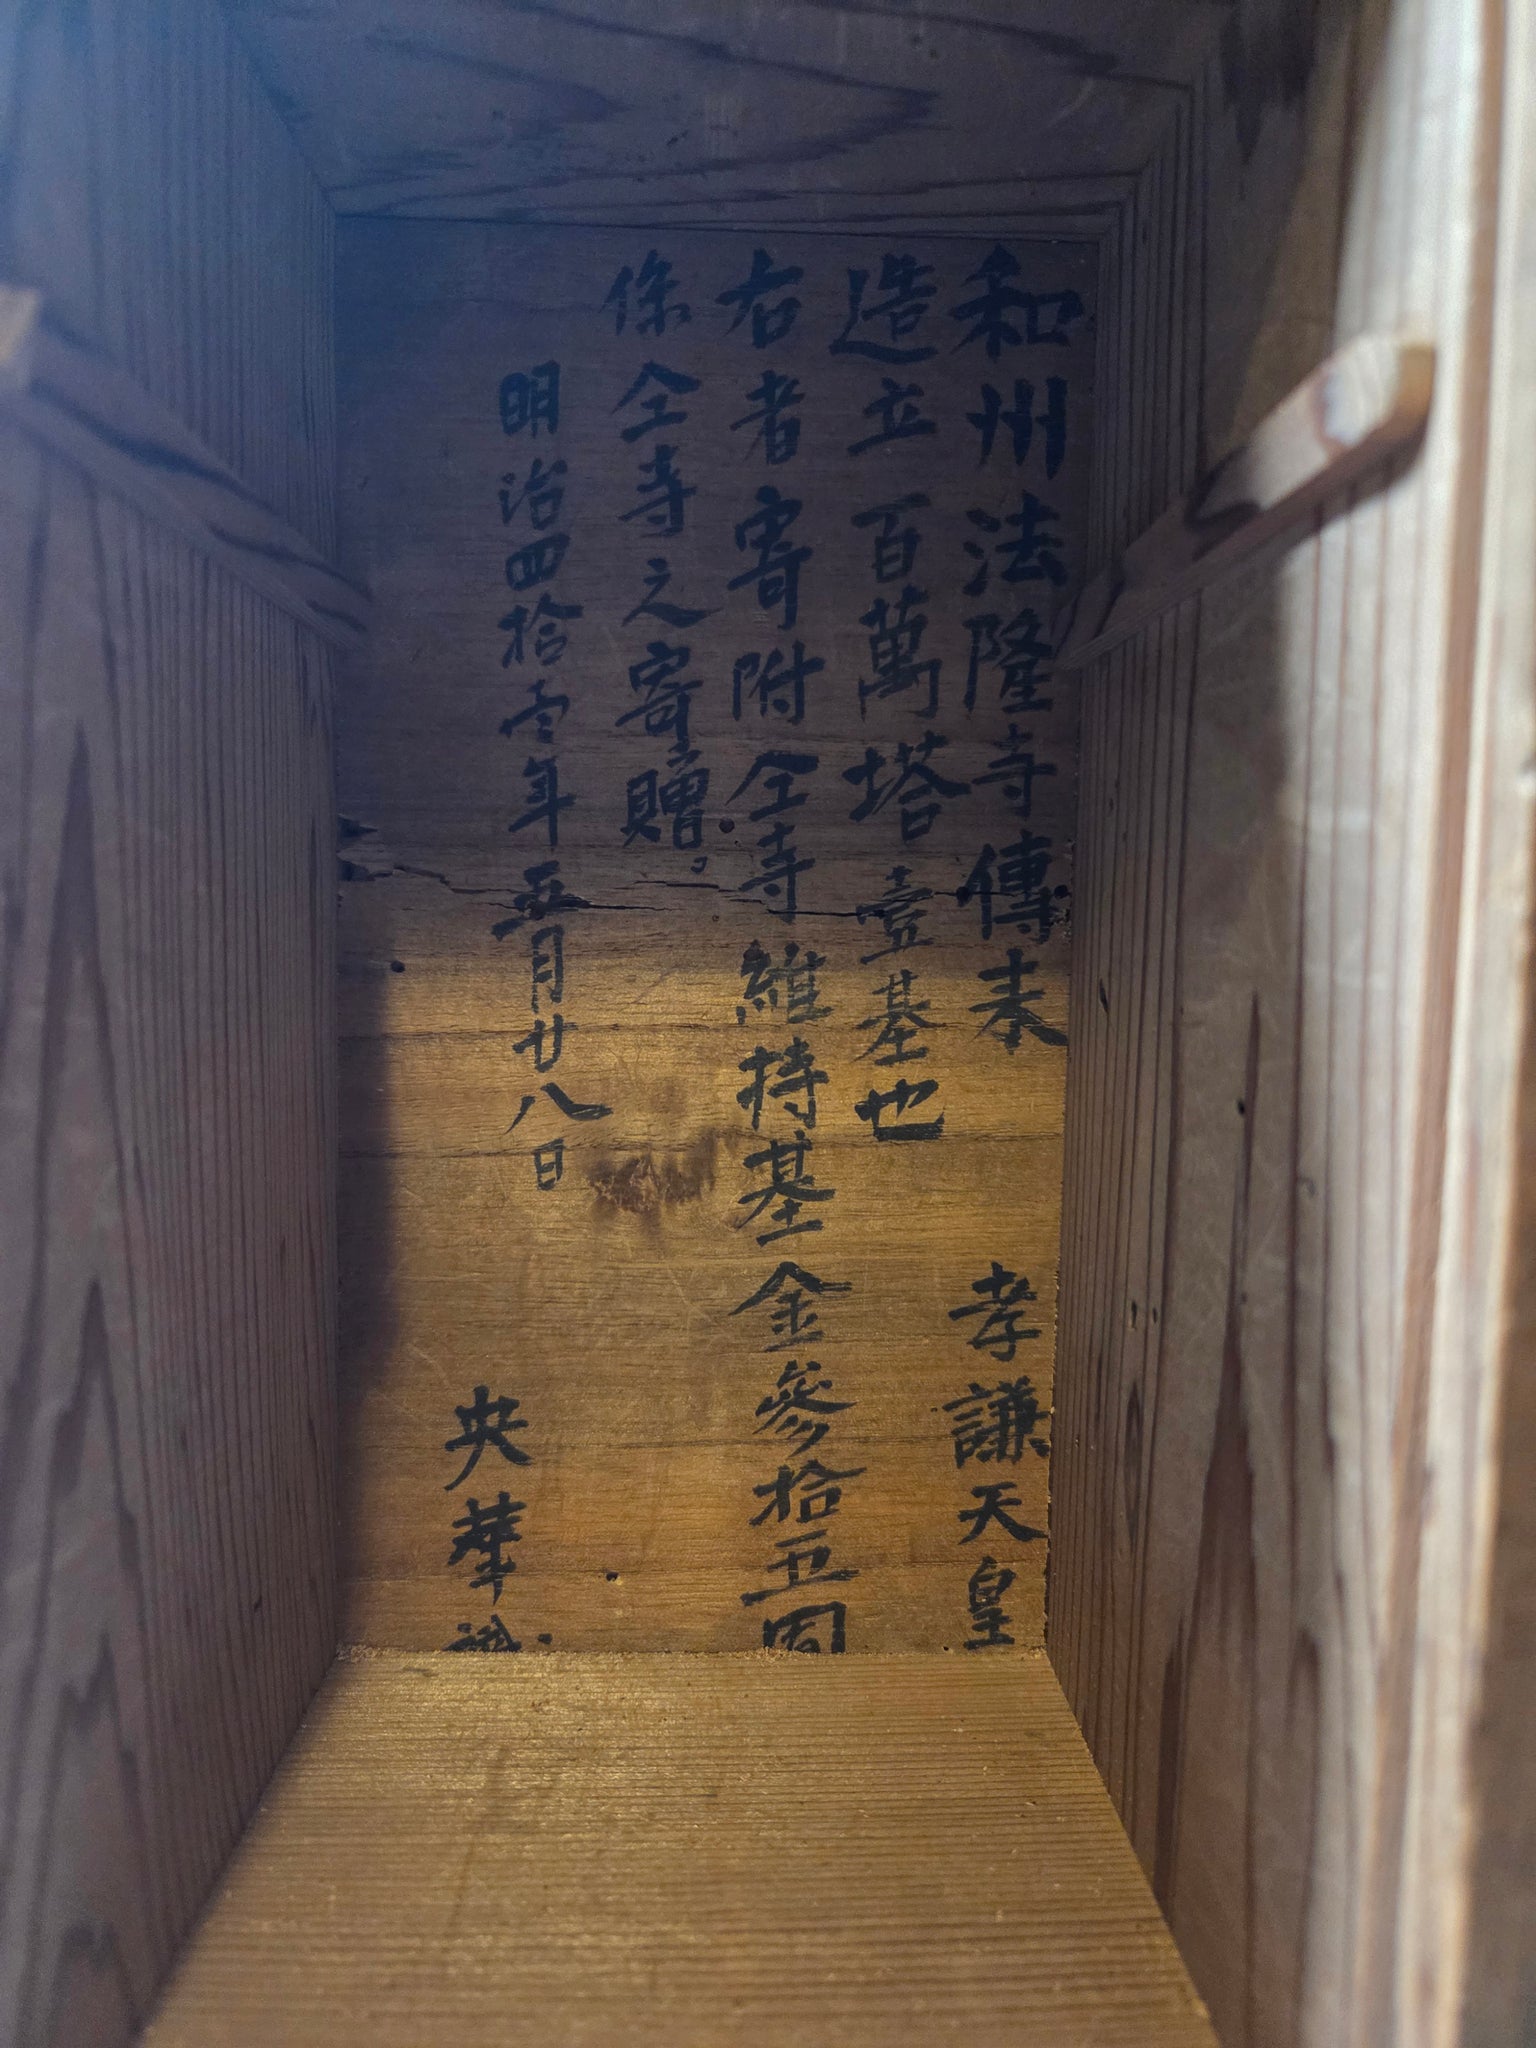 和州法隆寺傳来　孝謙天皇
造立百萬塔壹基也
右者寄附仝寺維持基金參拾五円
係仝寺之寄贈。
明治四拾壱年五月廿八日
央華